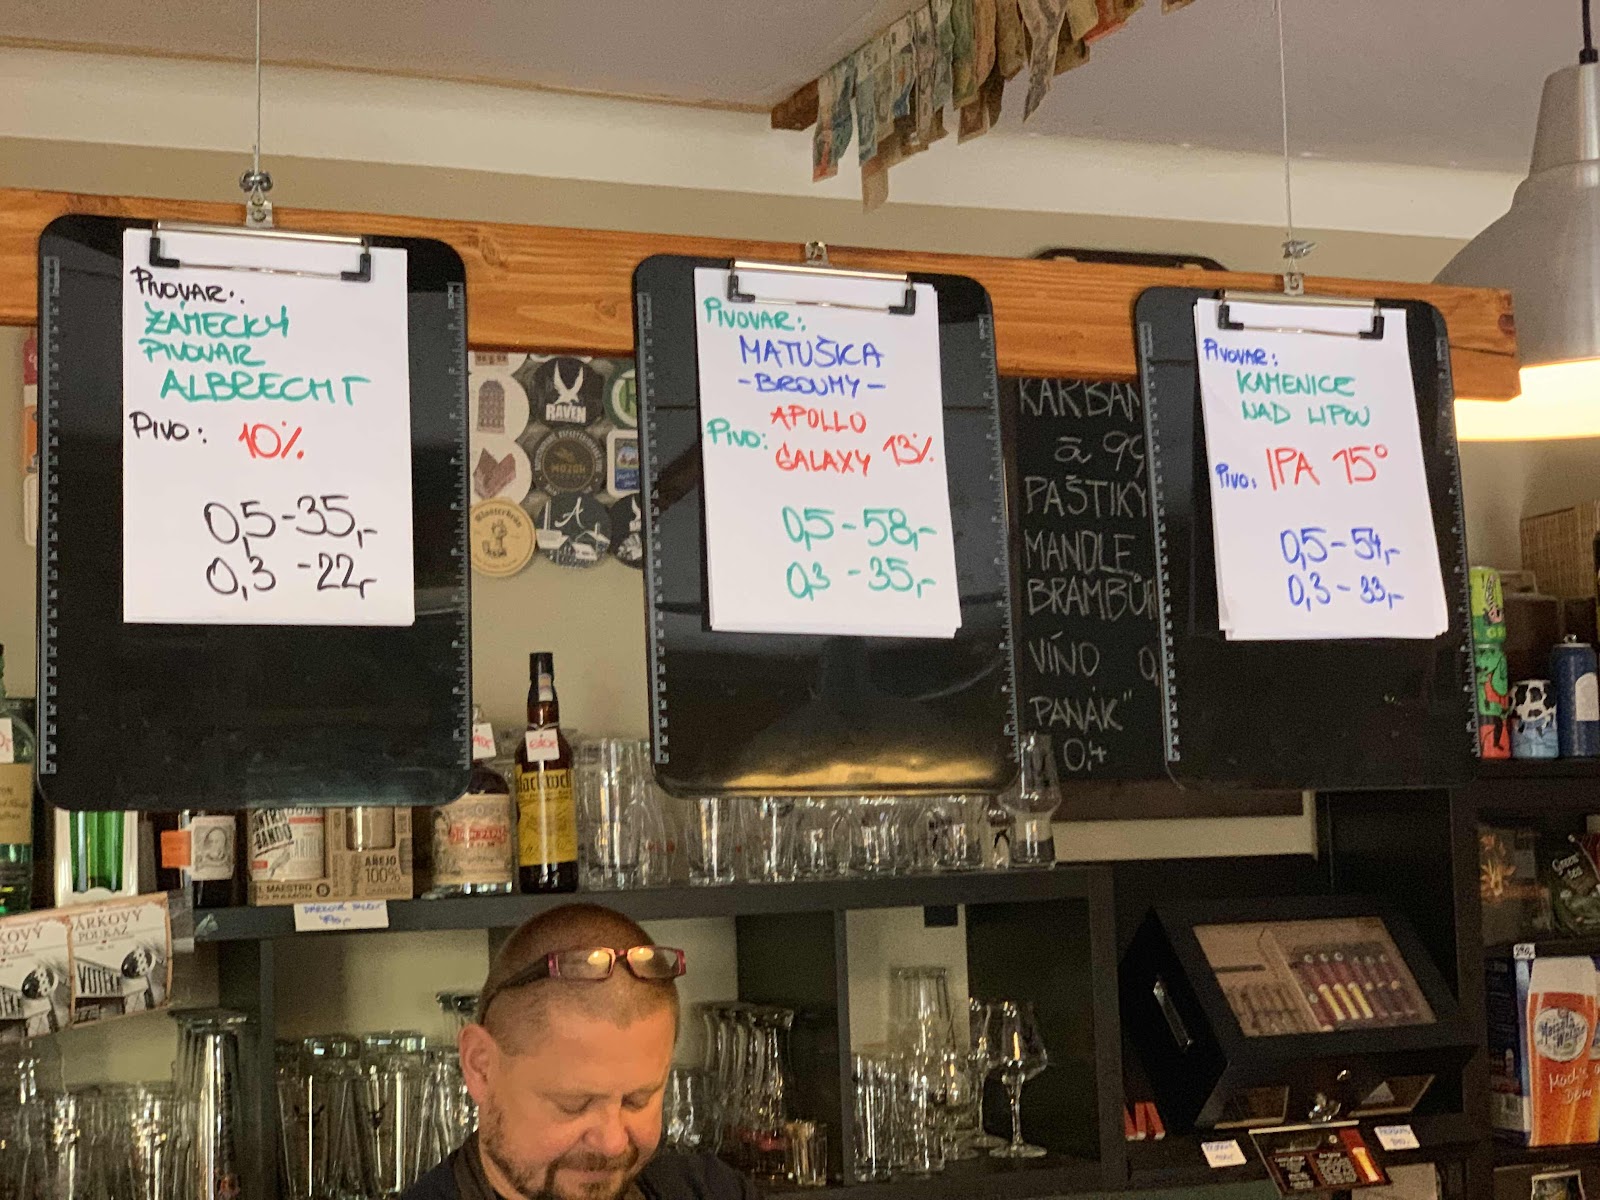 PIVOVAR:
ZÁMECKÝ
PIVOVAR
ALBRECHT
PIVO: 10%
0,5-35,-
0,3-22,-
PIVOVAR:
MATUŠKA
-BROUMY-
PIVO: APOLLO
GALAXY 13%
0,5-58,-
0,3-35,-
PIVOVAR:
KAMENICE
NAD LIPOU
PIVO: IPA 15°
0,5-54,-
0,3-33,-
RAVEN
KARBAN
à 99
PAŠTIKY
MANDLE
BRAMBŮR
VÍNO 0,
PANÁK"
0,4
AÑEJO
100%
DÁRKOVÝ
POUKAZ